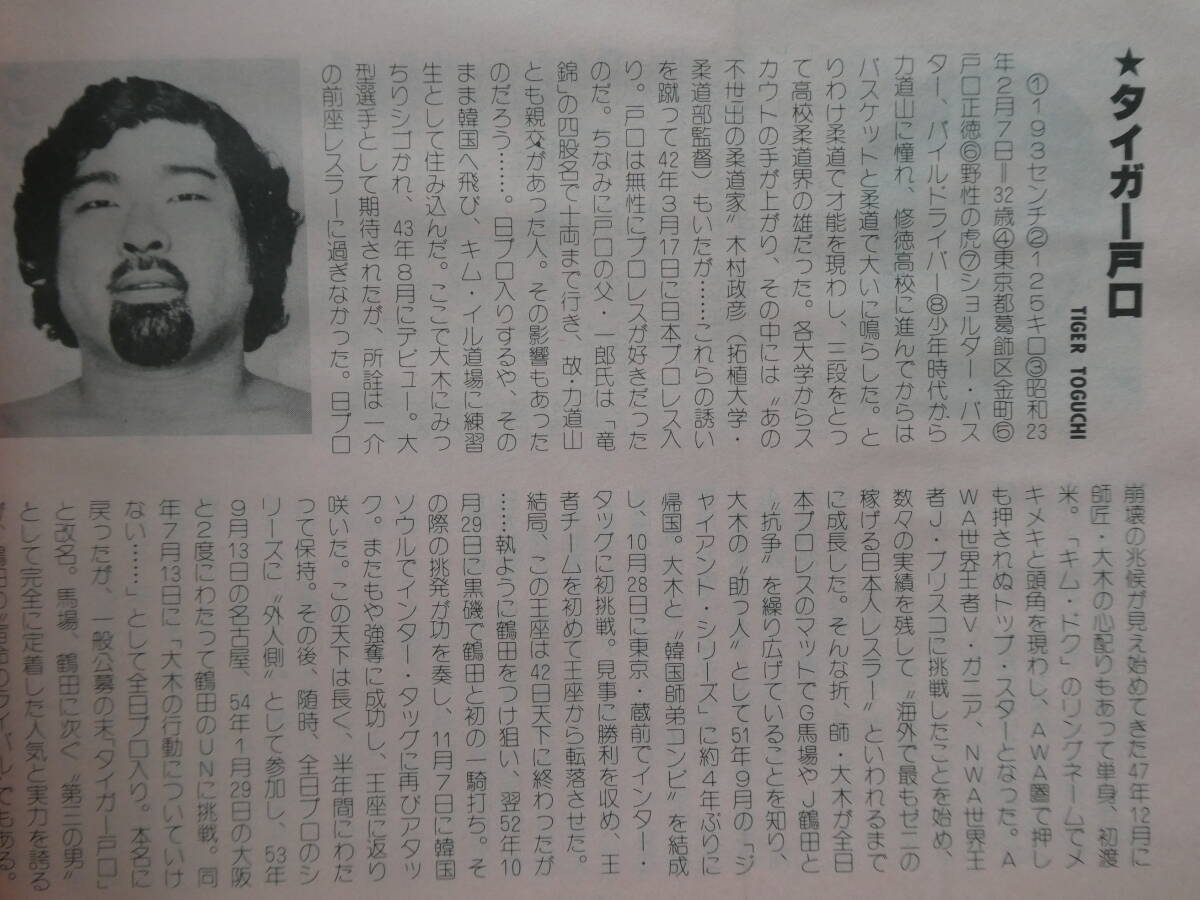 ★タイガー戸口
TIGER TOGUCHI
①193センチ②125キロ③昭和23
年2月7日＝32歳④東京都葛飾区金町⑤
戸口正徳⑥野性の虎⑦ショルダー・バス
ター、パイルドライバー⑧少年時代から
力道山に憧れ、修徳高校に進んでからは
バスケットと柔道で大いに鳴らした。と
りわけ柔道で才能を現わし、三段をとっ
て高校柔道界の雄だった。各大学からス
カウトの手が上がり、その中には〝あの
不世出の柔道家〟木村政彦（拓植大学・
柔道部監督）もいたが……これらの誘い
を蹴って42年3月17日に日本プロレス入
り。戸口は無性にプロレスが好きだった
のだ。ちなみに戸口の父・一郎氏は「竜
錦」の四股名で十両まで行き、故・力道山
とも親交があった人。その影響もあった
のだろう……。日プロ入りするや、その
まま韓国へ飛び、キム・イル道場に練習
生として住み込んだ。ここで大木にみっ
ちりシゴかれ、43年8月にデビュー。大
型選手として期待されたが、所詮は一介
の前座レスラーに過ぎなかった。日プロ
崩壊の兆候が見え始めてきた47年12月に
師匠・大木の心配りもあって単身、初渡
米。「キム・ドク」のリングネームでメ
キメキと頭角を現わし、AWA圏で押し
も押されぬトップ・スターとなった。A
WA世界王者V・ガニア、NWA世界王
者J・ブリスコに挑戦したことを始め、
数々の実績を残して〝海外で最もゼニの
稼げる日本人レスラー〟といわれるまで
に成長した。そんな折、師・大木が全日
本プロレスのマットでG馬場やJ鶴田と
〝抗争〟を繰り広げていることを知り、
大木の〝助っ人〟として51年9月の「ジ
ャイアント・シリーズ」に約4年ぶりに
帰国。大木と〝韓国師弟コンビ〟を結成
し、10月28日に東京・蔵前でインター・
タッグに初挑戦。見事に勝利を収め、王
者チームを初めて王座から転落させた。
結局、この王座は42日天下に終わったが
……執ように鶴田をつけ狙い、翌52年10
月29日に黒磯で鶴田と初の一騎打ち。そ
の際の挑発が功を奏し、11月7日に韓国
ソウルでインター・タッグに再びアタッ
ク。またもや強奪に成功し、王座に返り
咲いた。この天下は長く、半年間にわた
って保持。その後、随時、全日プロのシ
リーズに〝外人側〟として参加し、53年
9月13日の名古屋、54年1月29日の大阪
と2度にわたって鶴田のUNに挑戦。同
年7月13日に「大木の行動についていけ
ない……」として全日プロ入り。本名に
戻ったが、一般公募の末「タイガー戸口」
と改名。馬場、鶴田に次ぐ〝第三の男〟
として完全に定着した人気と実力を誇る